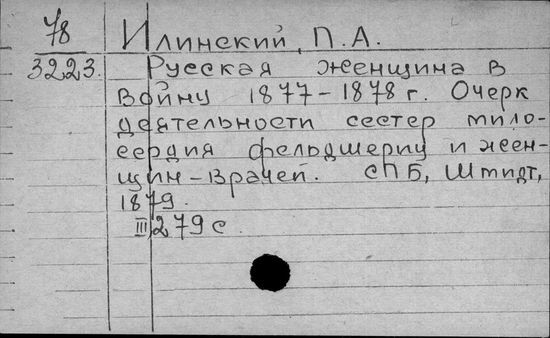 78
3223.
Илинский, П.А.
Русская женщина в
войну 1877-1878 г. Очерк
деятельности сестер мило-
сердия фельдшериц и жен-
щин-врачей. СПБ, Штидт,
1879.
III, 279 с